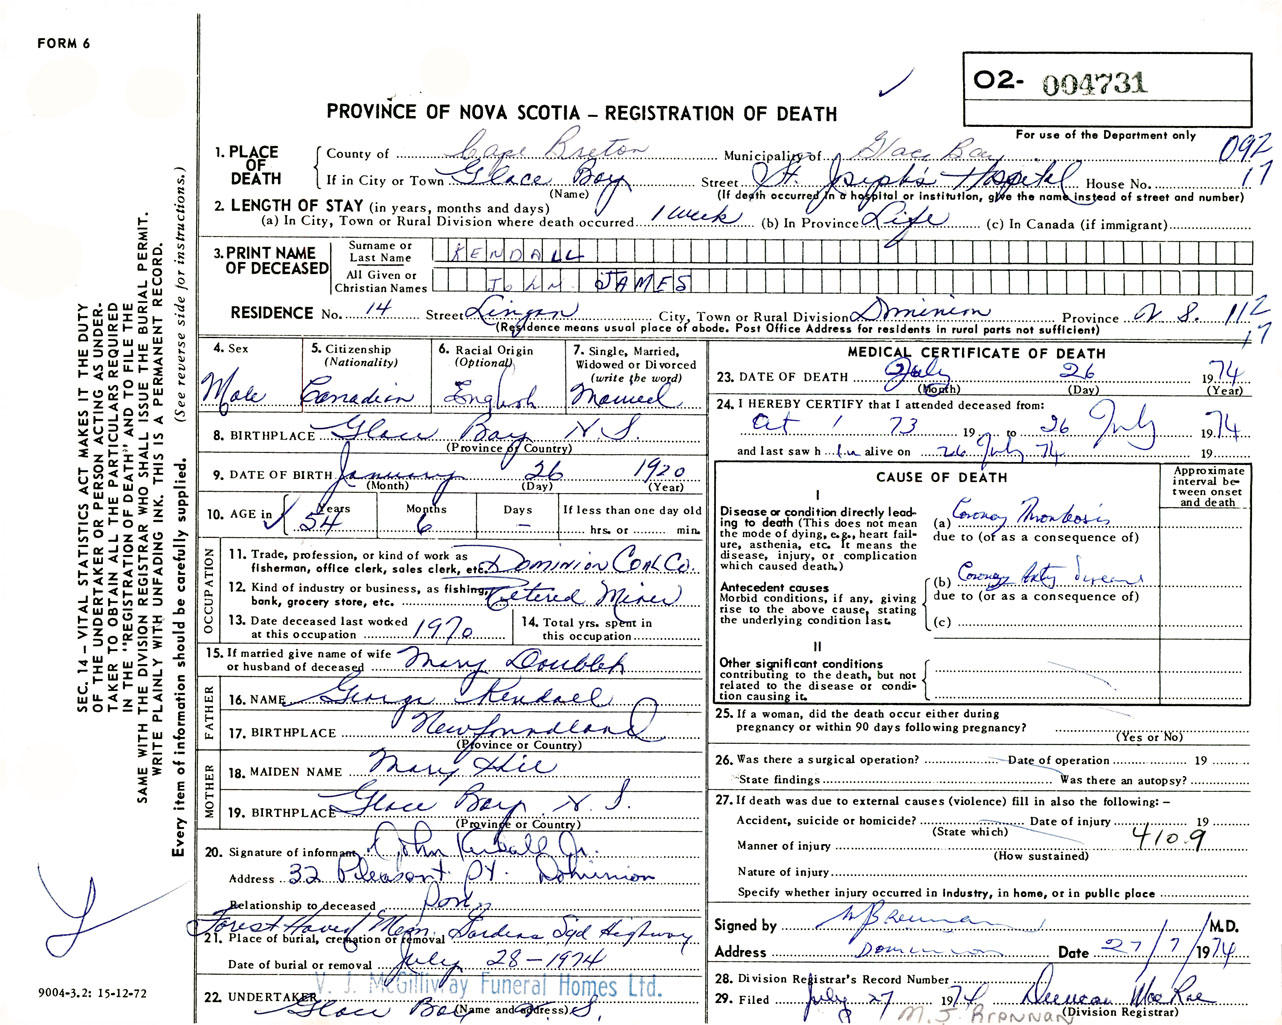 FORM 6
O2- 004731
PROVINCE OF NOVA SCOTIA – REGISTRATION OF DEATH
For use of the Department only
092
17
1. PLACE OF DEATH
County of Cape Breton Municipality of Glace Bay
If in City or Town Glace Bay Street St. Joseph's Hospital House No.
(Name) (If death occurred in a hospital or institution, give the name instead of street and number)
2. LENGTH OF STAY (in years, months and days)
(a) In City, Town or Rural Division where death occurred 1 week (b) In Province Life (c) In Canada (if immigrant)
3. PRINT NAME OF DECEASED
Surname or Last Name KENDALL
All Given or Christian Names JOHN JAMES
RESIDENCE No. 14 Street Lingan City, Town or Rural Division Dominion Province N. S. 112
17
(Residence means usual place of abode. Post Office Address for residents in rural parts not sufficient)
4. Sex
Male
5. Citizenship
(Nationality)
Canadian
6. Racial Origin
(Optional)
English
7. Single, Married,
Widowed or Divorced
(write the word)
Married
8. BIRTHPLACE Glace Bay N. S.
(Province or Country)
9. DATE OF BIRTH January 26 1920
(Month) (Day) (Year)
10. AGE in
Years 54
Months 6
Days –
If less than one day old
hrs. or min.
OCCUPATION
11. Trade, profession, or kind of work as
fisherman, office clerk, sales clerk, etc. DOMINION COAL CO.
12. Kind of industry or business, as fishing,
bank, grocery store, etc. Retired Miner
13. Date deceased last worked
at this occupation 1970
14. Total yrs. spent in
this occupation
15. If married give name of wife
or husband of deceased Mary
FATHER
16. NAME George Kendall
17. BIRTHPLACE Newfoundland
(Province or Country)
MOTHER
18. MAIDEN NAME Mary
19. BIRTHPLACE Glace Bay N. S.
(Province or Country)
20. Signature of informant John Kendall Jr.
Address 32 Pleasant St. Dominion
Relationship to deceased Son
Forest Haven Mem. Gardens Syd Highway
21. Place of burial, cremation or removal
Date of burial or removal July 28 – 1974
V. J. McGillivray Funeral Homes Ltd.
22. UNDERTAKER Glace Bay N. S.
(Name and address)
MEDICAL CERTIFICATE OF DEATH
23. DATE OF DEATH July 26 1974
(Month) (Day) (Year)
24. I HEREBY CERTIFY that I attended deceased from:
Oct 1 73 19 to 26 July 1974
and last saw h im alive on 26 July 74 19
CAUSE OF DEATH
Approximate
interval be-
tween onset
and death
I
Disease or condition directly lead-
ing to death (This does not mean
the mode of dying, e.g., heart fail-
ure, asthenia, etc. It means the
disease, injury, or complication
which caused death.)
(a) Coronary Thrombosis
due to (or as a consequence of)
Antecedent causes
Morbid conditions, if any, giving
rise to the above cause, stating
the underlying condition last.
(b) Coronary Arty disease
due to (or as a consequence of)
(c)
II
Other significant conditions
contributing to the death, but not
related to the disease or condi-
tion causing it.
25. If a woman, did the death occur either during
pregnancy or within 90 days following pregnancy?
(Yes or No)
26. Was there a surgical operation? Date of operation 19
State findings Was there an autopsy?
27. If death was due to external causes (violence) fill in also the following: –
Accident, suicide or homicide? Date of injury 19
(State which)
410.9
Manner of injury
(How sustained)
Nature of injury
Specify whether injury occurred in industry, in home, or in public place
Signed by M J Brennan M.D.
Address Dominion Date 27/7/1974
28. Division Registrar's Record Number
29. Filed July 27 1974 Duncan MacRae
(Division Registrar)
M. J. BRENNAN
SEC. 14 – VITAL STATISTICS ACT MAKES IT THE DUTY
OF THE UNDERTAKER OR PERSON ACTING AS UNDER-
TAKER TO OBTAIN ALL THE PARTICULARS REQUIRED
IN THE "REGISTRATION OF DEATH" AND TO FILE THE
SAME WITH THE DIVISION REGISTRAR WHO SHALL ISSUE THE BURIAL PERMIT.
WRITE PLAINLY WITH UNFADING INK. THIS IS A PERMANENT RECORD.
Every item of information should be carefully supplied. (See reverse side for instructions.)
9004-3.2: 15-12-72